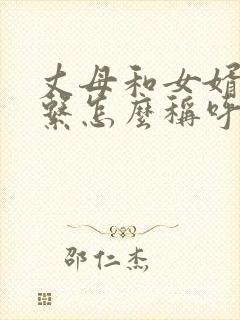 丈母和女婿
繫怎麽稱呼
邵仁杰